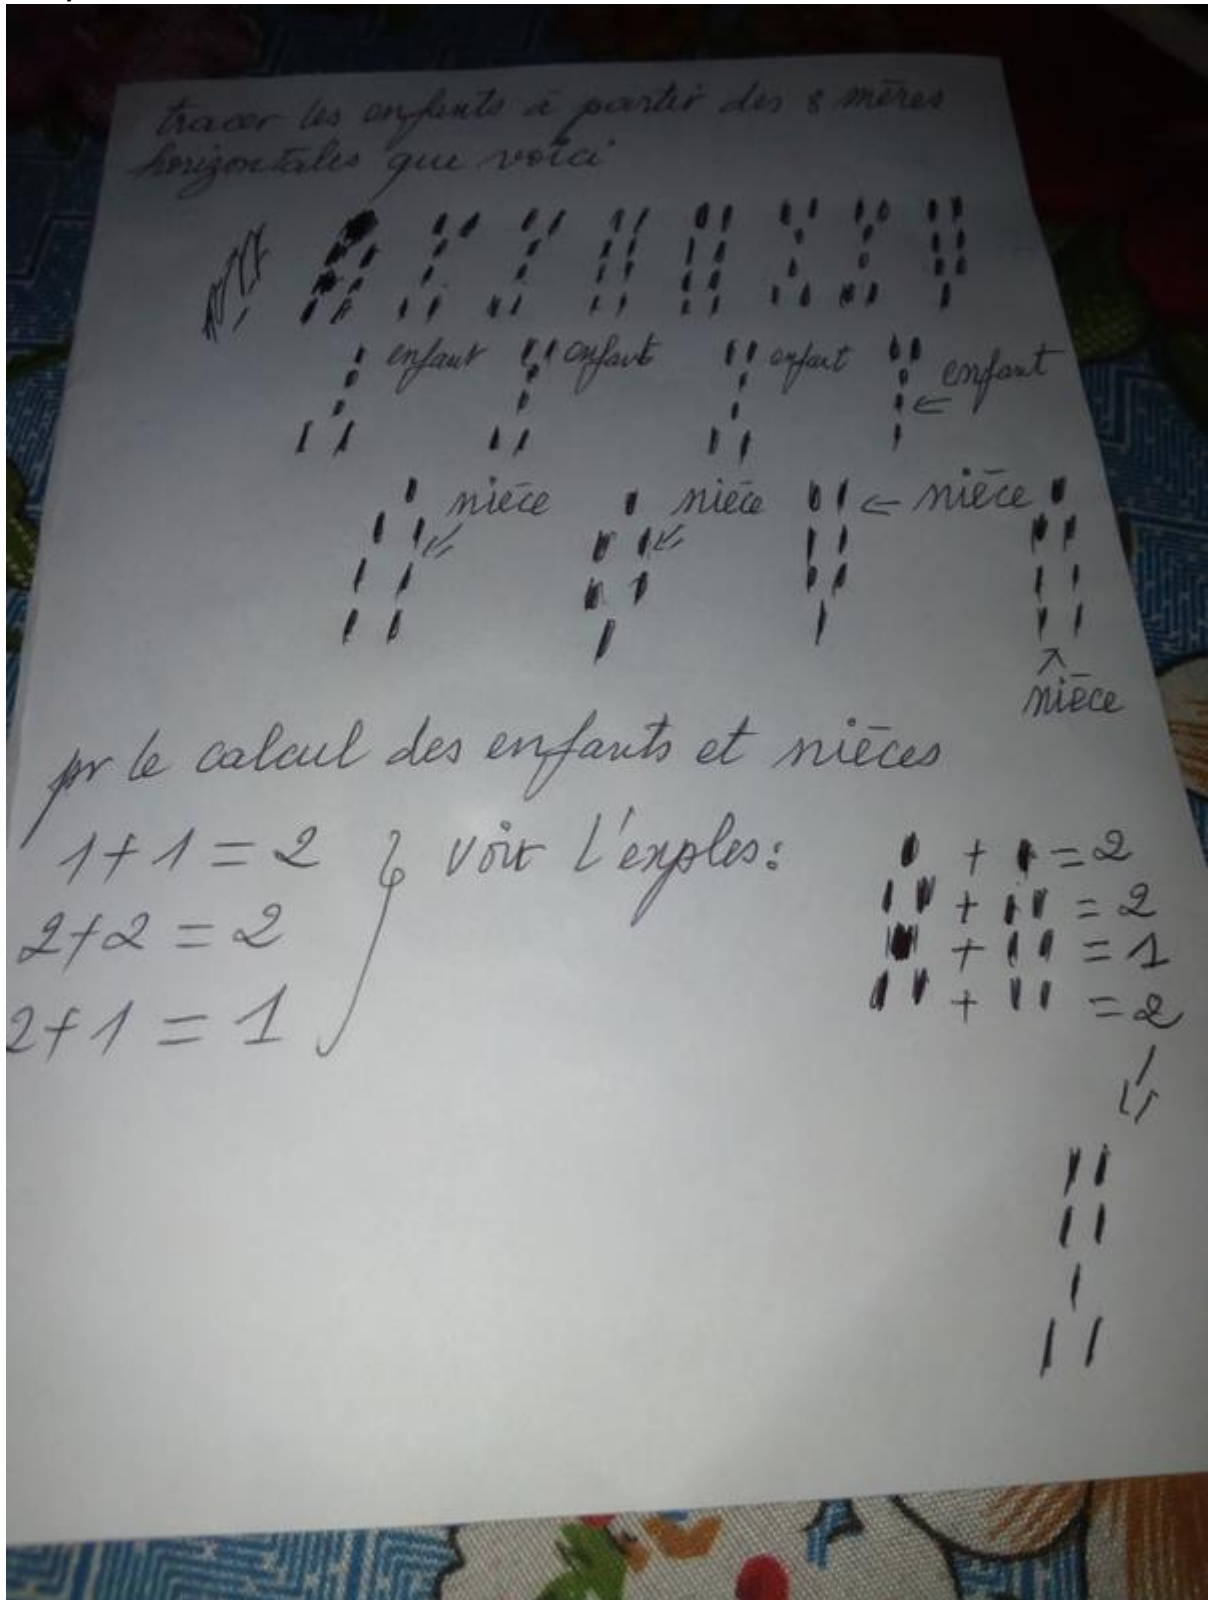 tracer les enfants à partir des 8 mères
horizontales que voici
enfant enfant enfant enfant
nièce nièce nièce
nièce
pr le calcul des enfants et nièces
1+1=2 voir l'exples: + =2
2+2=2 + =2
+ =1
2+1=1 + =2